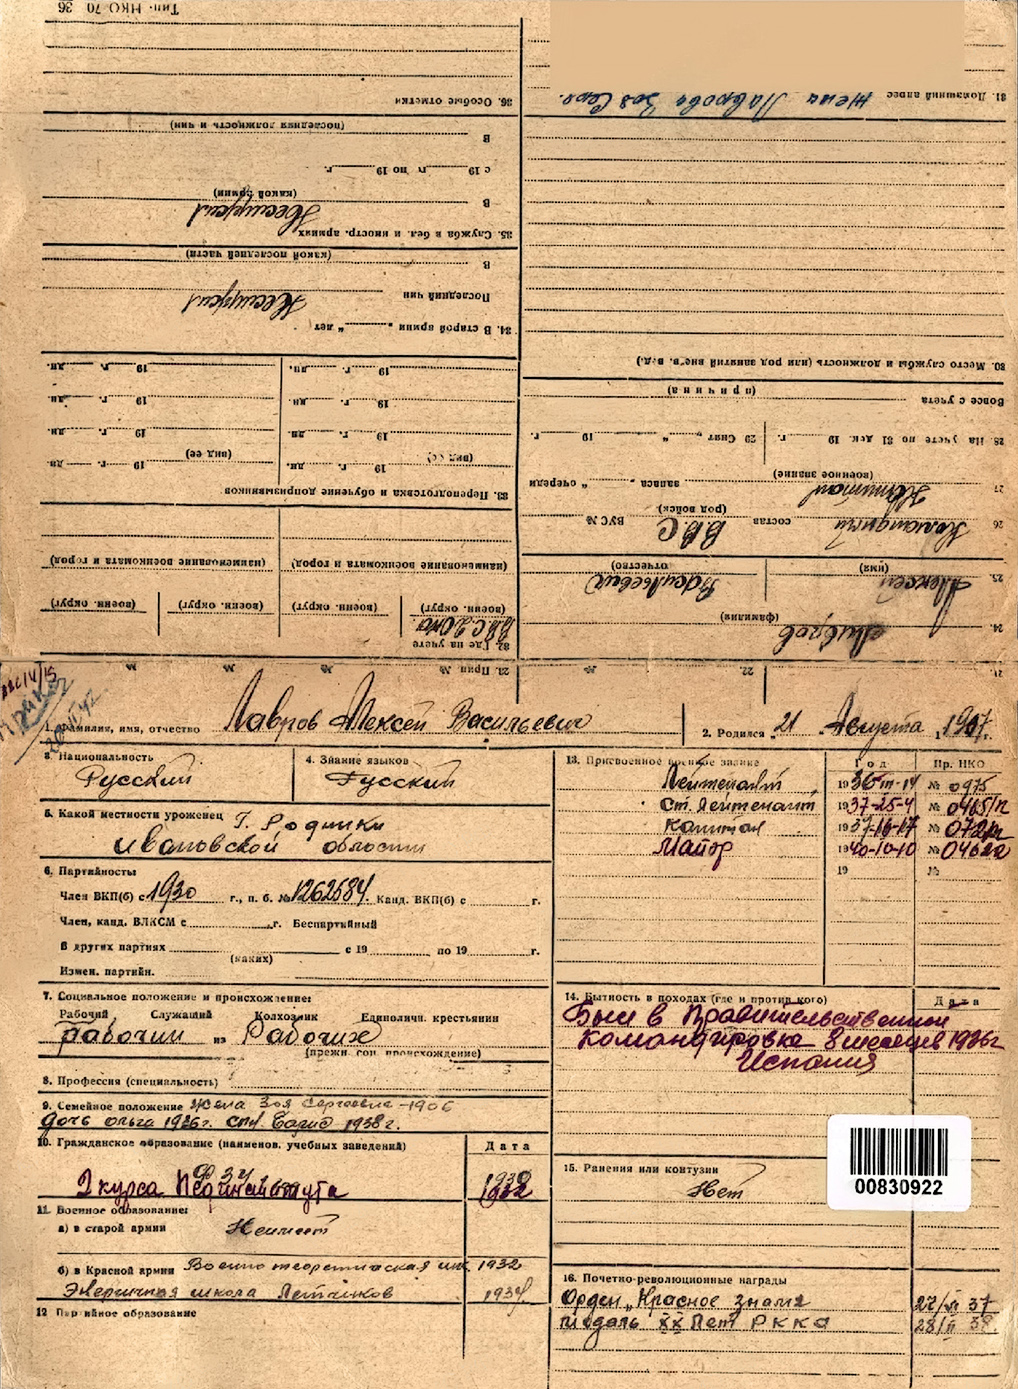 Тип. НКО 70 36
36. Особые отметки
(последняя должность и чин)
В
с 19 г. по 19 г.
(какой армии)
В
Не служил
35. Служба в бел. и иностр. армиях
(какой последней части)
В
Последний чин
Не служил
34. В старой армии „ “ лет
19 г. дн. 19 г. дн.
19 г. дн. 19 г. дн.
19 г. дн. 19 г. дн.
(вид ее) (вид ее)
19 г. дн. 19 г. дн.
33. Переподготовка и обучение допризывников
(наименование военкомата и город) (наименование военкомата и город)
(военн. округ) (военн. округ) (военн. округ) (военн. округ)
32. Где на учете
31. Домашний адрес жена Лаврова Зоя Серг.
30. Место службы и должность (или род занятий вне в. вед.)
(причина)
Вовсе с учета
28. На учете по 31 дек. 19 г. 29 Снят „ “ 19 г.
(военное звание)
27 Капитан запаса „ “ очереди
(род войск)
26 Командный состав ВВС ВУС №
(имя) (отчество)
25. Алексей Васильевич
(фамилия)
24. Лавров
23. Прип. № № №
22.
21.
1. Фамилия, имя, отчество Лавров Алексей Васильевич
2. Родился „21 Августа 1907 г.
3. Национальность
Русский
4. Знание языков
Русский
5. Какой местности уроженец Г. Родники
Ивановской области
6. Партийность
Член ВКП(б) с 1930 г., п. б. № 1262584. Канд. ВКП(б) с г.
Член, канд. ВЛКСМ с г. Беспартийный
В других партиях с 19 по 19 г.
(каких)
Измен. партийн.
7. Социальное положение и происхождение:
Рабочий Служащий Колхозник Единоличн. крестьянин
рабочий из Рабочих
(прежн. соц. происхождение)
8. Профессия (специальность)
9. Семейное положение жена Зоя Сергеевна – 1906
дочь Ольга 1936 г. сын 1938 г.
10. Гражданское образование (наименов. учебных заведений)
Дата
2 курса Пединститута
11. Военное образование:
а) в старой армии Не имеет
б) в Красной армии Военно теоретическая шк. 1932
школа Летчиков
12 Партийное образование
13. Присвоенное военное звание
Год Пр. НКО
Лейтенант 1936-III-14 № 0975
Ст. Лейтенант 1937-25-4 № 0465/п
Капитан 1937-16-17 №
Майор 1940-10-10 №
19 №
14. Бытность в походах (где и против кого) Дата
Был в Правительственной
командировке 8 месяцев 1936 г
Испания
15. Ранения или контузии
Нет
00830922
16. Почетно-революционные награды
Орден „Красное знамя 37
Медаль XX Лет РККА 28/II 38.